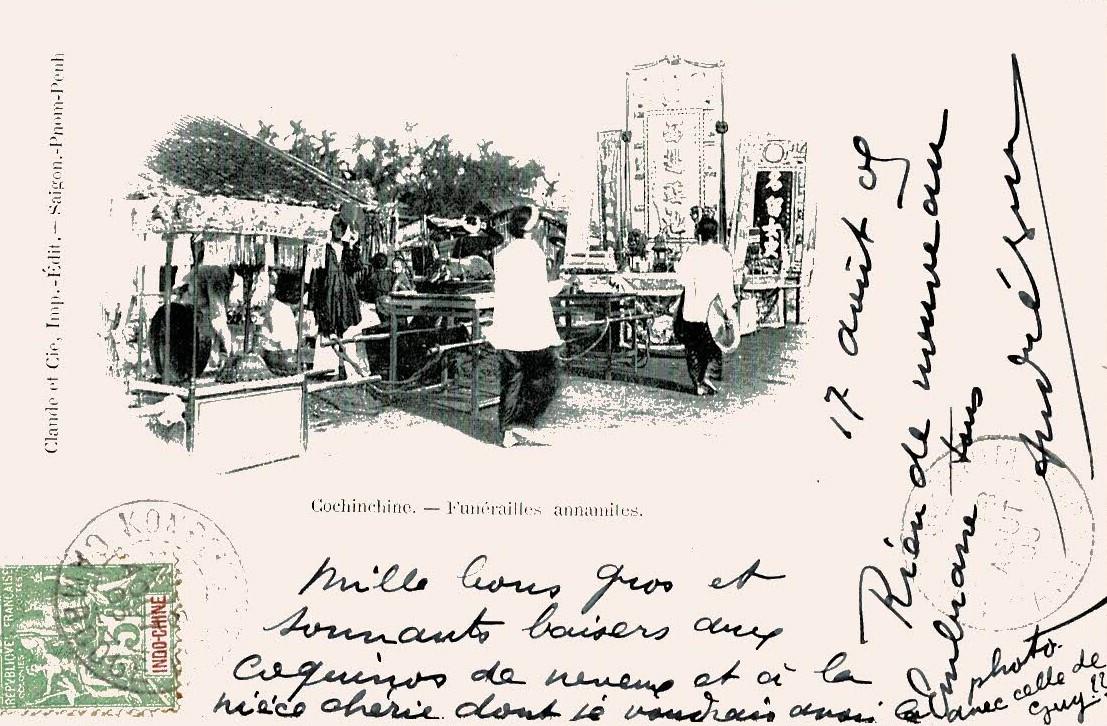 Claude et Cie, Imp.-Édit. — Saïgon.-Pnom-Penh
Cochinchine. — Funérailles annamites.
17 août
Rien de nouveau
embrasse tous
Mille bons gros et
sonnants baisers aux
coquinos de neveux et à la
nièce chérie dont je voudrais avoir la
photo.
avec celle de
Guy !!
RÉPUBLIQUE FRANÇAISE
COLONIES
POSTES
5
INDO-CHINE
AOUT